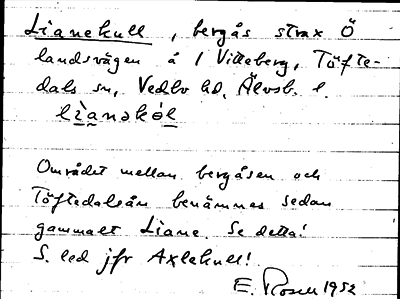 Lianekull, bergås strax Ö
landsvägen å 1 Villeberg, Töfte-
dals sn, Vedbo hd, Älvsb. l.
Området mellan bergåsen och
Töftedalsån benämnes sedan
gammalt Liane. Se detta!
S. led jfr Axlekull!
E. Rosell 1952